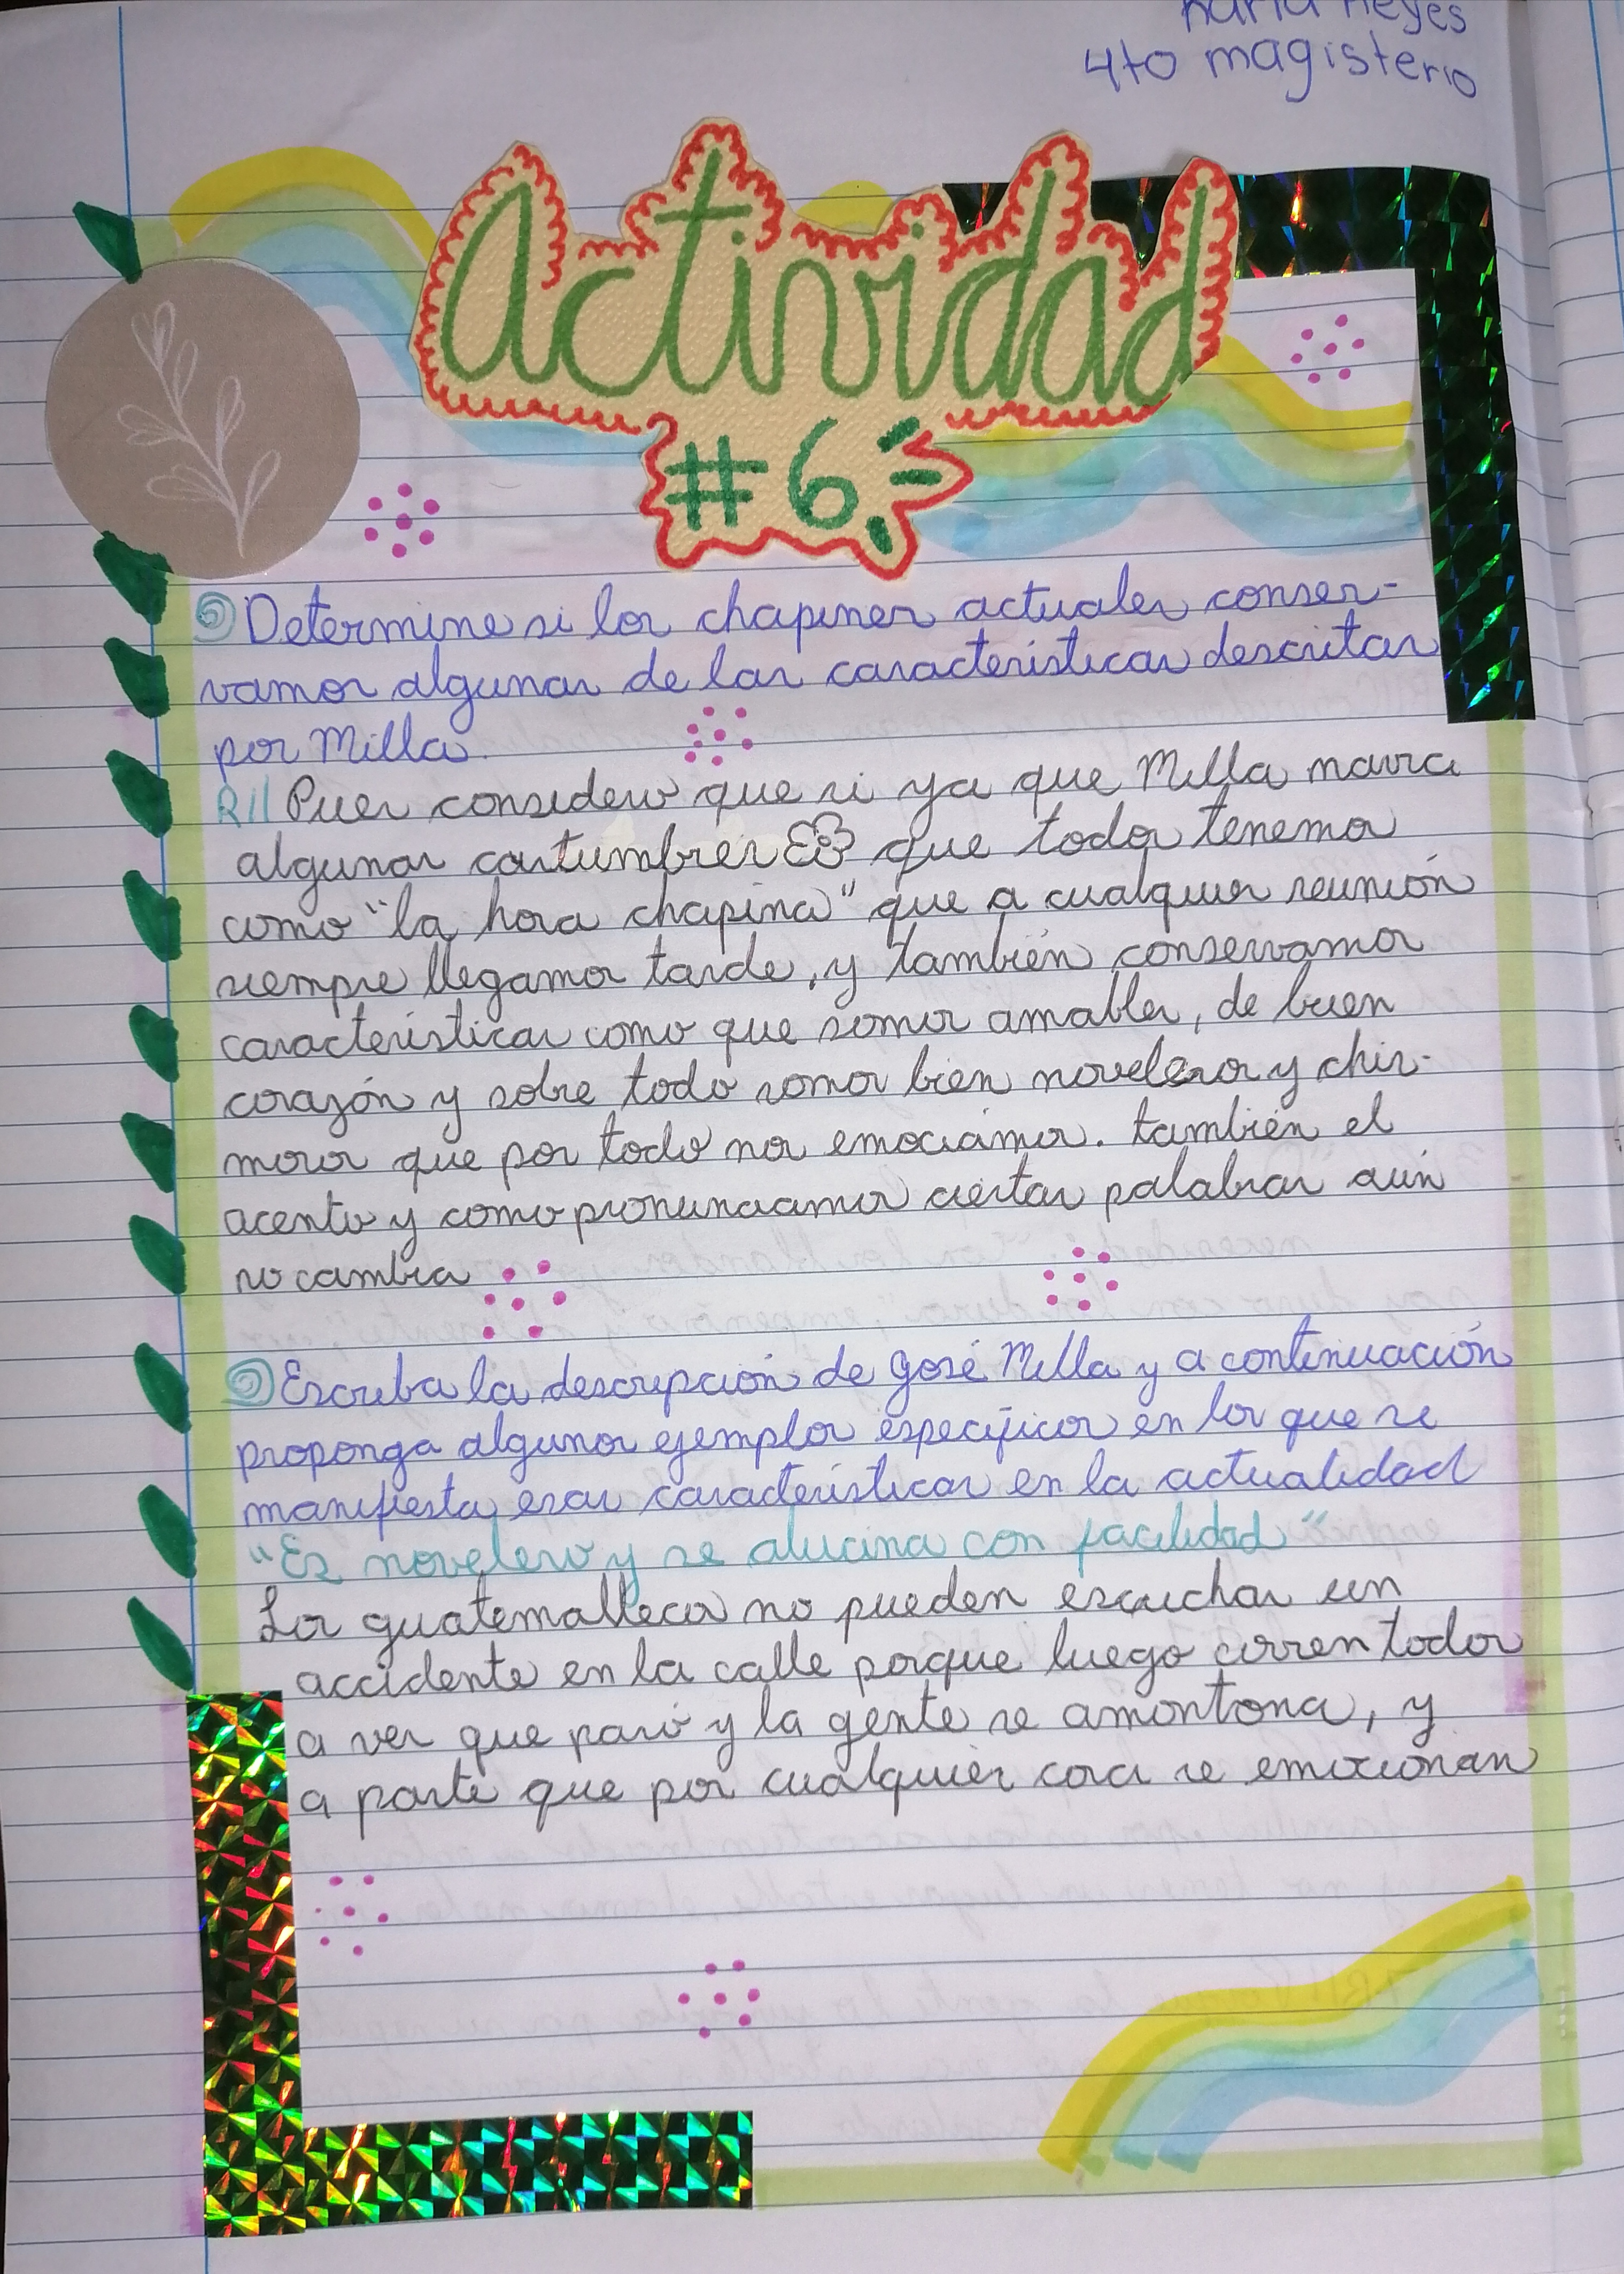 Reyes
4to magisterio
Actividad
#6
Determine si los chapines actuales conser-
vamos algunas de las características descritas
por Milla.
R// Pues considero que si ya que Milla narra
algunas costumbres que todos tenemos
como "la hora chapina" que a cualquier reunión
siempre llegamos tarde, y también conservamos
características como que somos amables, de buen
corazón y sobre todo somos bien noveleros y chis-
mosos que por todo nos emociamos. también el
acento y como pronunciamos ciertas palabras aún
no cambia
Escriba la descripción de José Milla y a continuación
proponga algunos ejemplos específicos en los que se
manifiesta esas características en la actualidad
"Es novelero y se alucina con facilidad"
Los guatemaltecos no pueden escuchar un
accidente en la calle porque luego corren todos
a ver que pasó y la gente se amontona, y
a parte que por cualquier cosa se emocionan